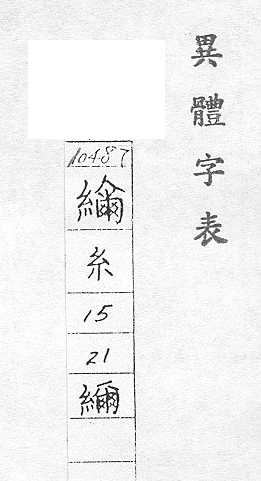 異體字表
10487
糸
15
21